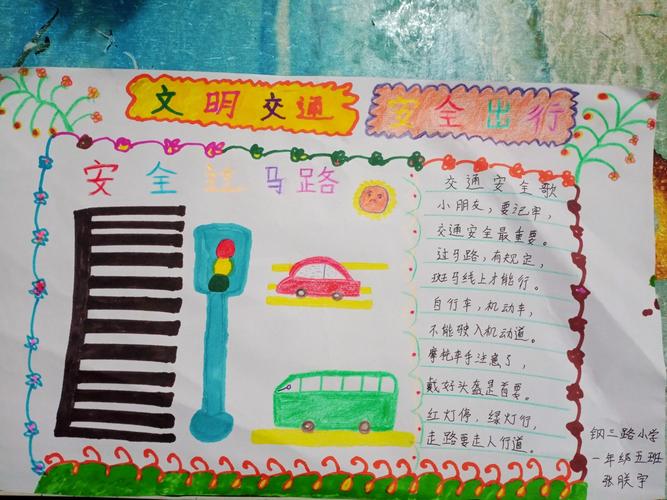 文明交通 安全出行
安全过马路
交通安全歌
小朋友，要记牢，
交通安全最重要。
过马路，有规定，
斑马线上才能行。
自行车，机动车，
不能驶入机动道。
摩托车手注意了，
戴好头盔是首要。
红灯停，绿灯行，
走路要走人行道。
钢三路小学
一年级五班
张朕宇